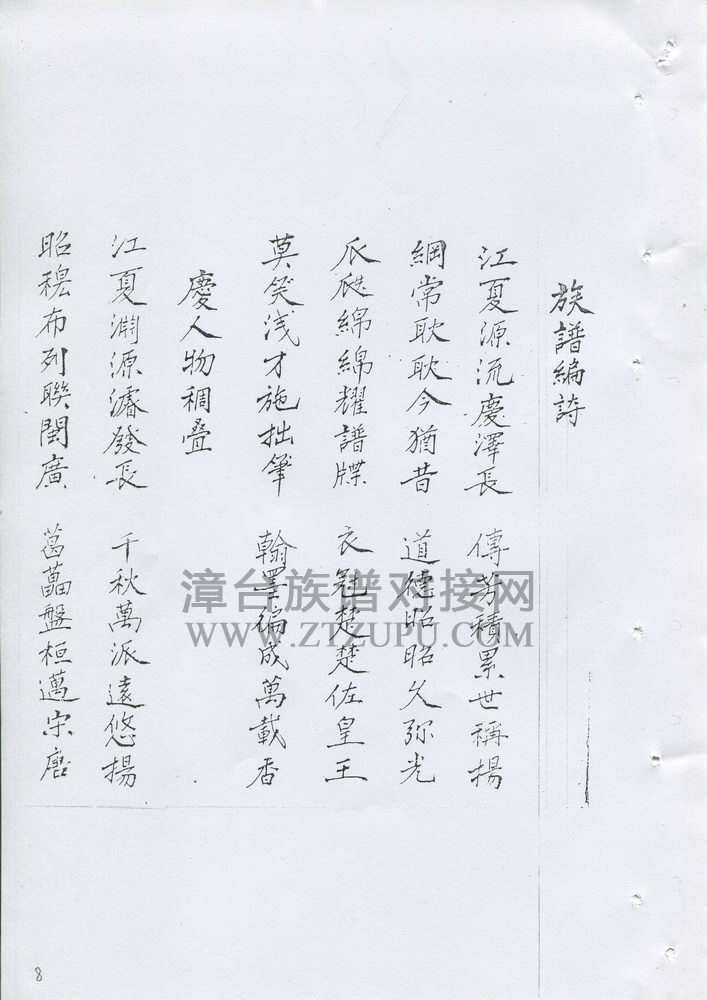 族譜編詩
江夏源流慶澤長 傳芳積累世稱揚
綱常耿耿今猶昔 道德昭昭久弥光
瓜瓞綿綿耀譜牒 衣冠楚楚佐皇王
莫笑浅才施拙筆 翰墨编成萬載香
慶人物稠疊
江夏淵源濬發長 千秋萬派遠悠揚
昭穆布列聯閩廣 葛藟盤桓邁宋唐
漳台族谱对接网
WWW.ZTZUPU.COM
8